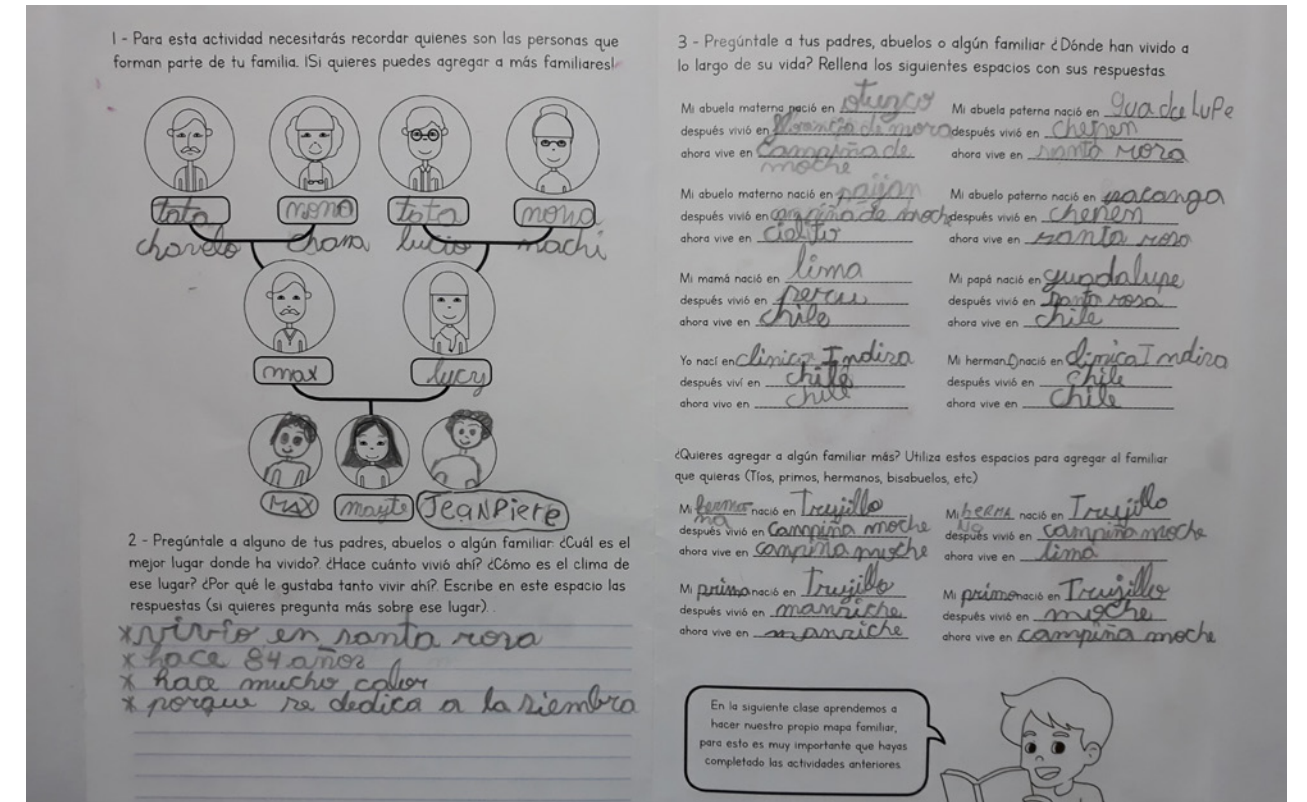 1 - Para esta actividad necesitarás recordar quienes son las personas que
forman parte de tu familia. ¡Si quieres puedes agregar a más familiares!
tata nona tata nona
chavelo chana lucio machi
max lucy
MAX mayte JEANPiere
2 - Pregúntale a alguno de tus padres, abuelos o algún familiar: ¿Cuál es el
mejor lugar donde ha vivido? ¿Hace cuánto vivió ahí? ¿Cómo es el clima de
ese lugar? ¿Por qué le gustaba tanto vivir ahí? Escribe en este espacio las
respuestas (si quieres pregunta más sobre ese lugar).
* vivío en santa rosa
* hace 84 años
* hace mucho calor
* porque se dedica a la siembra
3 - Pregúntale a tus padres, abuelos o algún familiar ¿Dónde han vivido a
lo largo de su vida? Rellena los siguientes espacios con sus respuestas
Mi abuela materna nació en otuzco
después vivió en de mora
ahora vive en Campiña de
moche
Mi abuela paterna nació en guadaluPe
después vivió en chepen
ahora vive en santa rosa
Mi abuelo materno nació en paijan
después vivió en campiña de moche
ahora vive en
Mi abuelo paterno nació en pacanga
después vivió en chepen
ahora vive en santa rosa
Mi mamá nació en lima
después vivió en peru
ahora vive en chile
Mi papá nació en guadalupe
después vivió en santa rosa
ahora vive en chile
Yo nací en clinica Indisa
después viví en chile
ahora vivo en chile
Mi herman O nació en clinica Indisa
después vivió en chile
ahora vive en chile
¿Quieres agregar a algún familiar más? Utiliza estos espacios para agregar al familiar
que quieras (Tíos, primos, hermanos, bisabuelos, etc)
Mi herma nació en Trujillo
na
después vivió en campiña moche
ahora vive en campiña moche
Mi hERMA nació en Trujillo
Na
después vivió en campiña moche
ahora vive en lima
Mi prima nació en Trujillo
después vivió en manriche
ahora vive en manriche
Mi primo nació en Trujillo
después vivió en moche
ahora vive en campiña moche
En la siguiente clase aprendemos a
hacer nuestro propio mapa familiar,
para esto es muy importante que hayas
completado las actividades anteriores